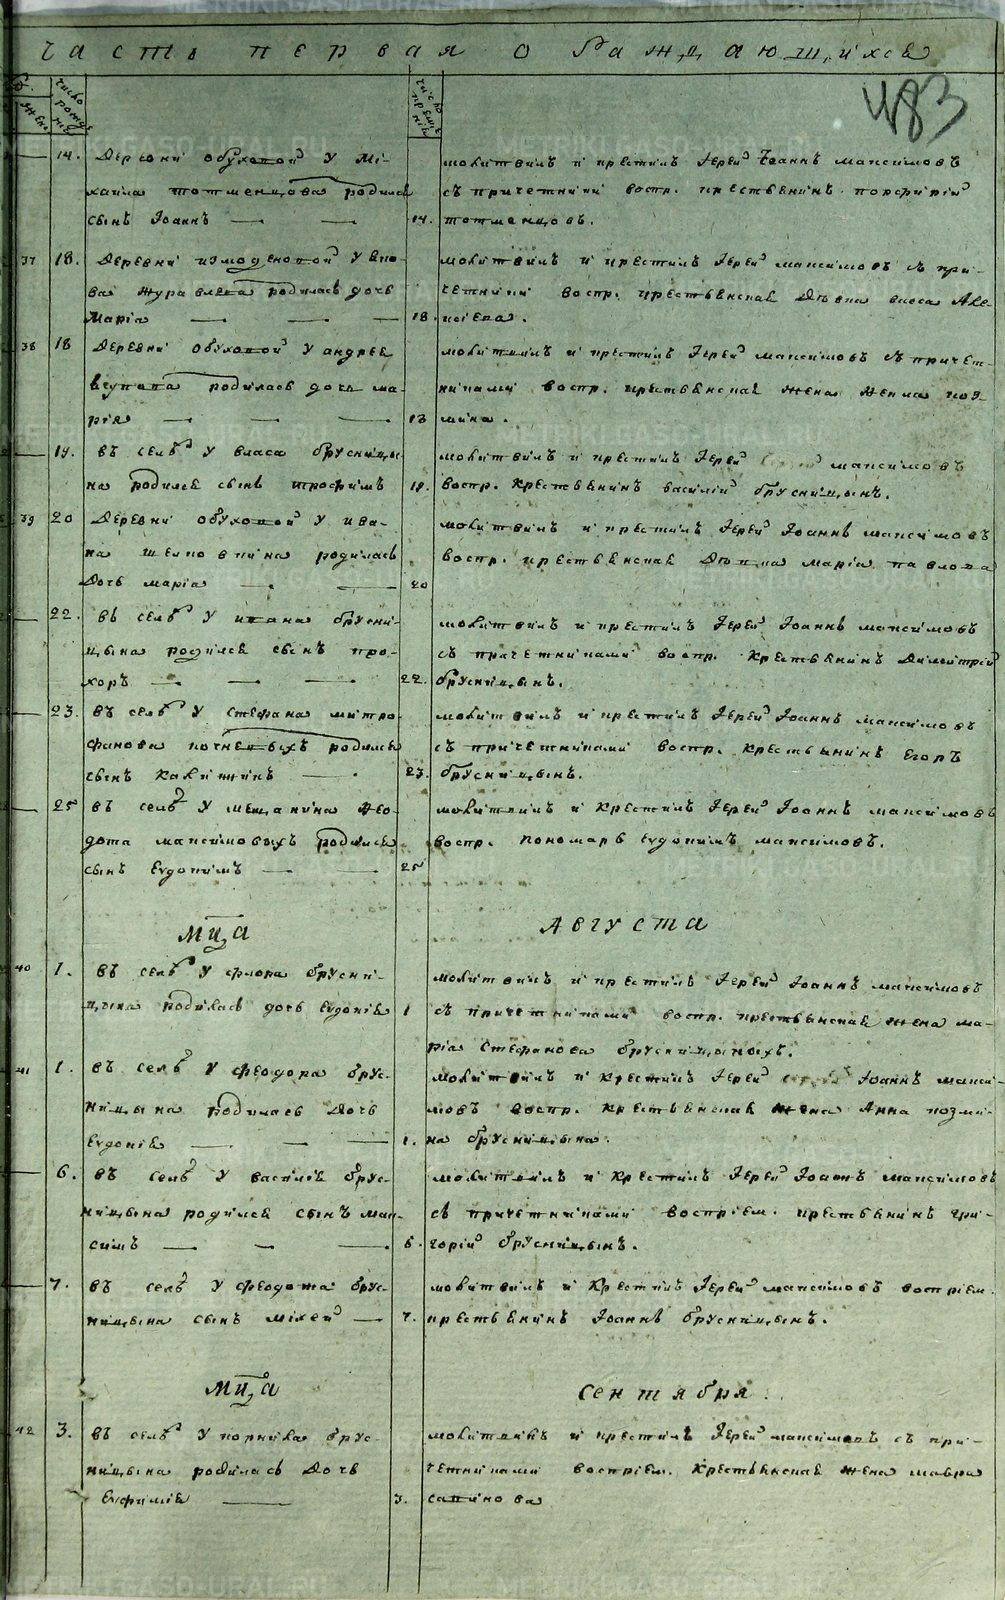 часть первая о раждающихся
483
число рождения
число крещения
жен.
14. Деревни обуховой у Ми-
хаила тотменцова родился
сынъ Іоаннъ
молитвилъ и крестилъ Іерей Іоаннъ максимовъ
съ причетники воспр. крестьянинъ порфирій
14. тотменцовъ.
37 18. Деревни измоденовой у
ва журавлева родилась дочь
Марія
молитвилъ и крестилъ Іерей максимовъ съ при-
четники воспр. крестьянская Дѣвка васса Але-
18. ксіева.
38 18 Деревни обуховой у андрея
родилась дочь ма-
рія
молитвилъ и крестилъ Іерей максимовъ съ причет-
никами воспр. крестьянская жена козь-
18 мина.
19. въ селѣ у власа брусницы-
на родился сынъ трофимъ
молитвилъ и крестилъ Іерей максимовъ
19. воспр. крестьянинъ василій брусницынъ.
39 20 Деревни обуховой у ива-
на родилась
Дочь марія
молитвилъ и крестилъ Іерей Іоаннъ максимовъ
воспр. крестьянская Дѣвка марія павлова
20
22. въ селѣ у ивана брусни-
цына родился сынъ про-
хоръ
молитвилъ и крестилъ Іерей Іоаннъ максимовъ
съ причетниками воспр. крестьянинъ Димитрій
22. брусницынъ.
23. въ селѣ у стефана митро-
фанова родился
сынъ каллиникъ
молитвилъ и крестилъ Іерей Іоаннъ максимовъ
съ причетниками воспр. крестьянинъ Егоръ
23. брусницынъ.
25 въ селѣ у мещанина Фео-
дота максимовыхъ родился
сынъ Евдокимъ
молитвилъ и крестилъ Іерей Іоаннъ максимовъ
воспр. пономарь Евдокимъ максимовъ.
25
Мца Августа
40 1. въ селѣ у флора брусни-
цына родилась дочь Евдокія
молитвилъ и крестилъ Іерей Іоаннъ максимовъ
1 съ причетниками воспр. крестьянская жена ма-
рія Стефанова брусницыныхъ.
41 1. въ селѣ у феодора брус-
ницына родилась Дочь
Евдокія
молитвилъ и крестилъ Іерей Іоаннъ макси-
мовъ воспр. крестьянская жена Анна козми-
1. на брусницына.
6. въ селѣ у василія брус-
ницына родился сынъ мак-
симъ
молитвилъ и крестилъ Іерей Іоаннъ максимовъ
съ причетниками воспріем. крестьянинъ гри-
6. горій брусницынъ.
7. въ селѣ у феодота брус-
ницына сынъ михей
молитвилъ и крестилъ Іерей максимовъ воспріем.
7. крестьянинъ Іоаннъ брусницынъ.
Мца Сентября
42 3. въ селѣ у корнила брус-
ницына родилась Дочь
Евфимія
молитвилъ и крестилъ Іерей максимовъ съ при-
четниками воспріем. крестьянская жена мавра
3. савинова